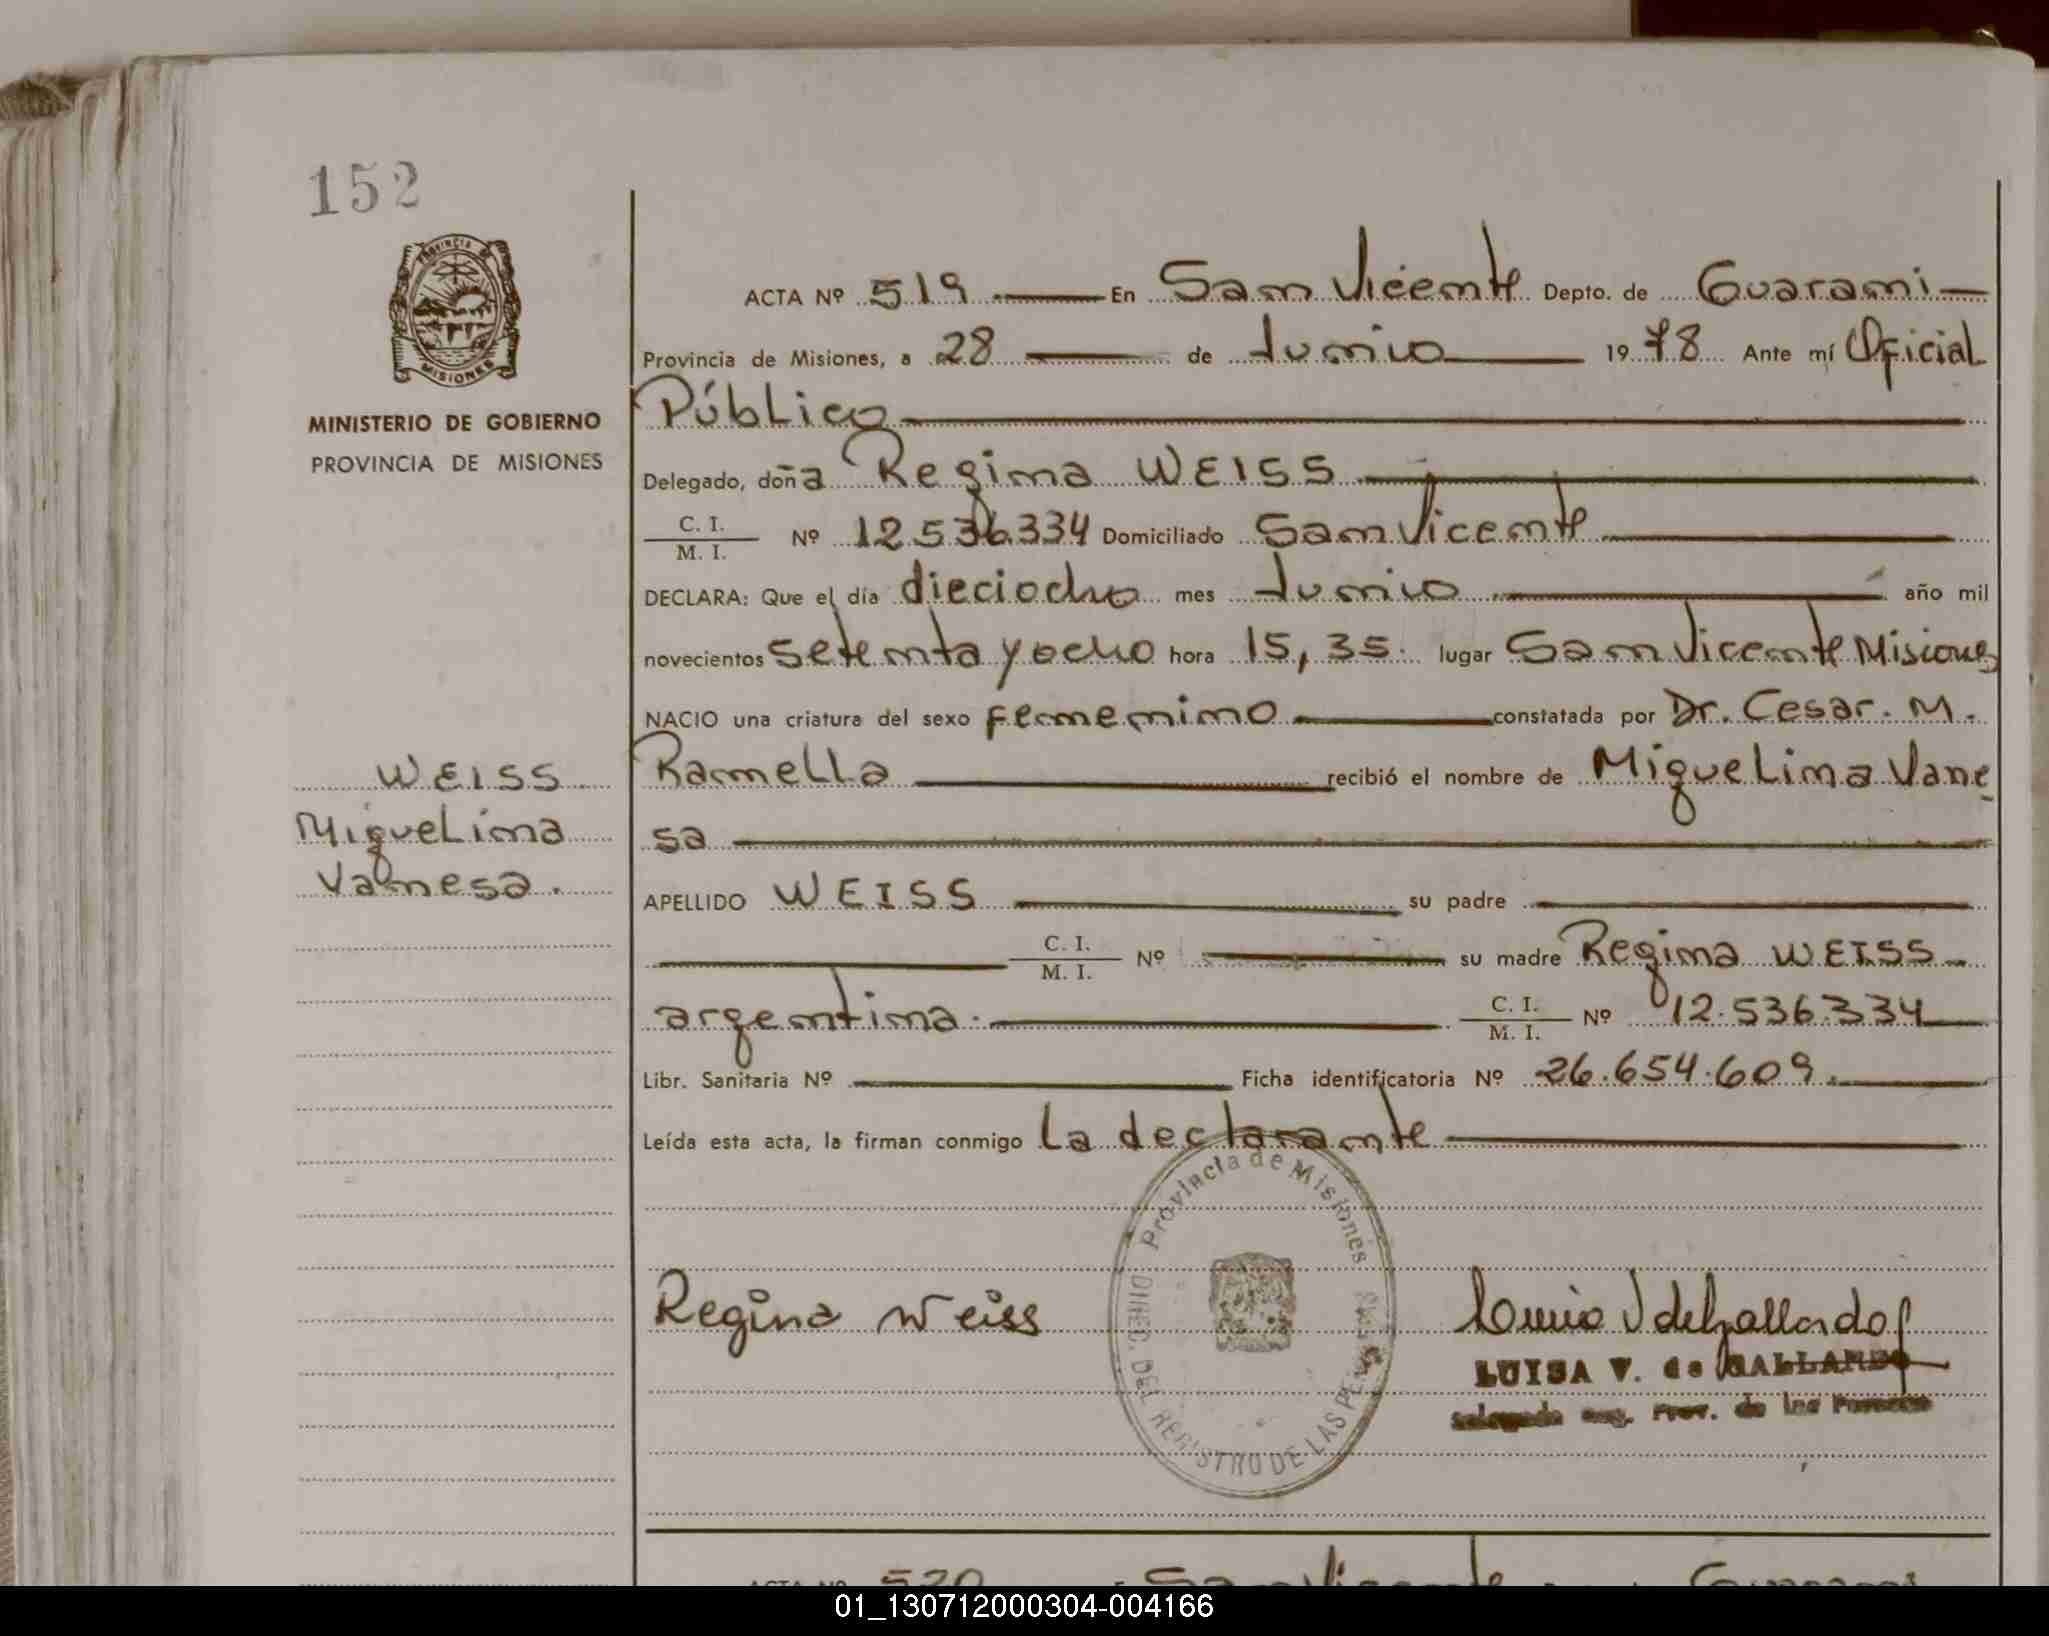 152
PROVINCIA DE
MISIONES
MINISTERIO DE GOBIERNO
PROVINCIA DE MISIONES
ACTA Nº 519 En San Vicente Depto. de Guarani
Provincia de Misiones, a 28 de Junio 1978 Ante mí Oficial
Público
Delegado, doña Regina WEISS
C. I.
M. I. Nº 12.536.334 Domiciliado San Vicente
DECLARA: Que el día dieciocho mes Junio año mil
novecientos setenta y ocho hora 15,35. lugar San Vicente Misiones
NACIO una criatura del sexo femenino constatada por Dr. Cesar. M.
Ramella recibió el nombre de Miguelina Vane
sa
WEISS
Miguelina
Vanesa.
APELLIDO WEISS su padre
C. I.
M. I. Nº su madre Regina WEISS
argentina. C. I.
M. I. Nº 12.536.334
Libr. Sanitaria Nº Ficha identificatoria Nº 26.654.609.
Leída esta acta, la firman conmigo la declarante
Provincia de Misiones
DIREC. DEL REGISTRO DE LAS PERS
Regina Weiss
LUISA V. de GALLARDO
de las
ACTA Nº 520 San Vicente Guarani
01_130712000304-004166